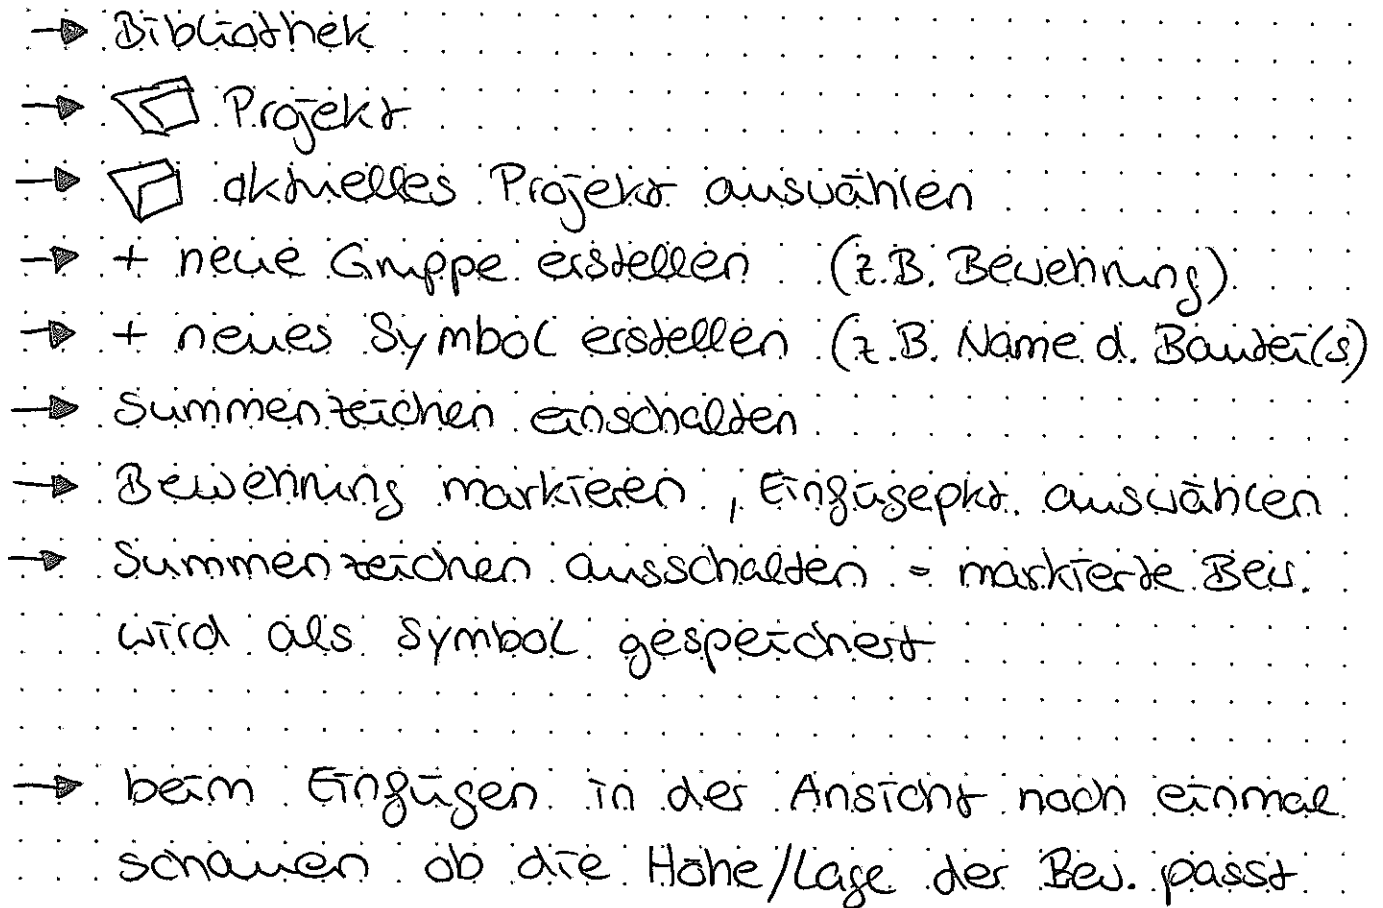 → Bibliothek
→ Projekt
→ aktuelles Projekt auswählen
→ + neue Gruppe erstellen (z.B. Bewehrung)
→ + neues Symbol erstellen (z.B. Name d. Bauteils)
→ Summenzeichen einschalten
→ Bewehrung markieren, Einfügepkt. auswählen
→ Summenzeichen ausschalten - markierte Bew.
wird als Symbol gespeichert
→ beim Einfügen in der Ansicht noch einmal
schauen ob die Höhe/Lage der Bew. passt